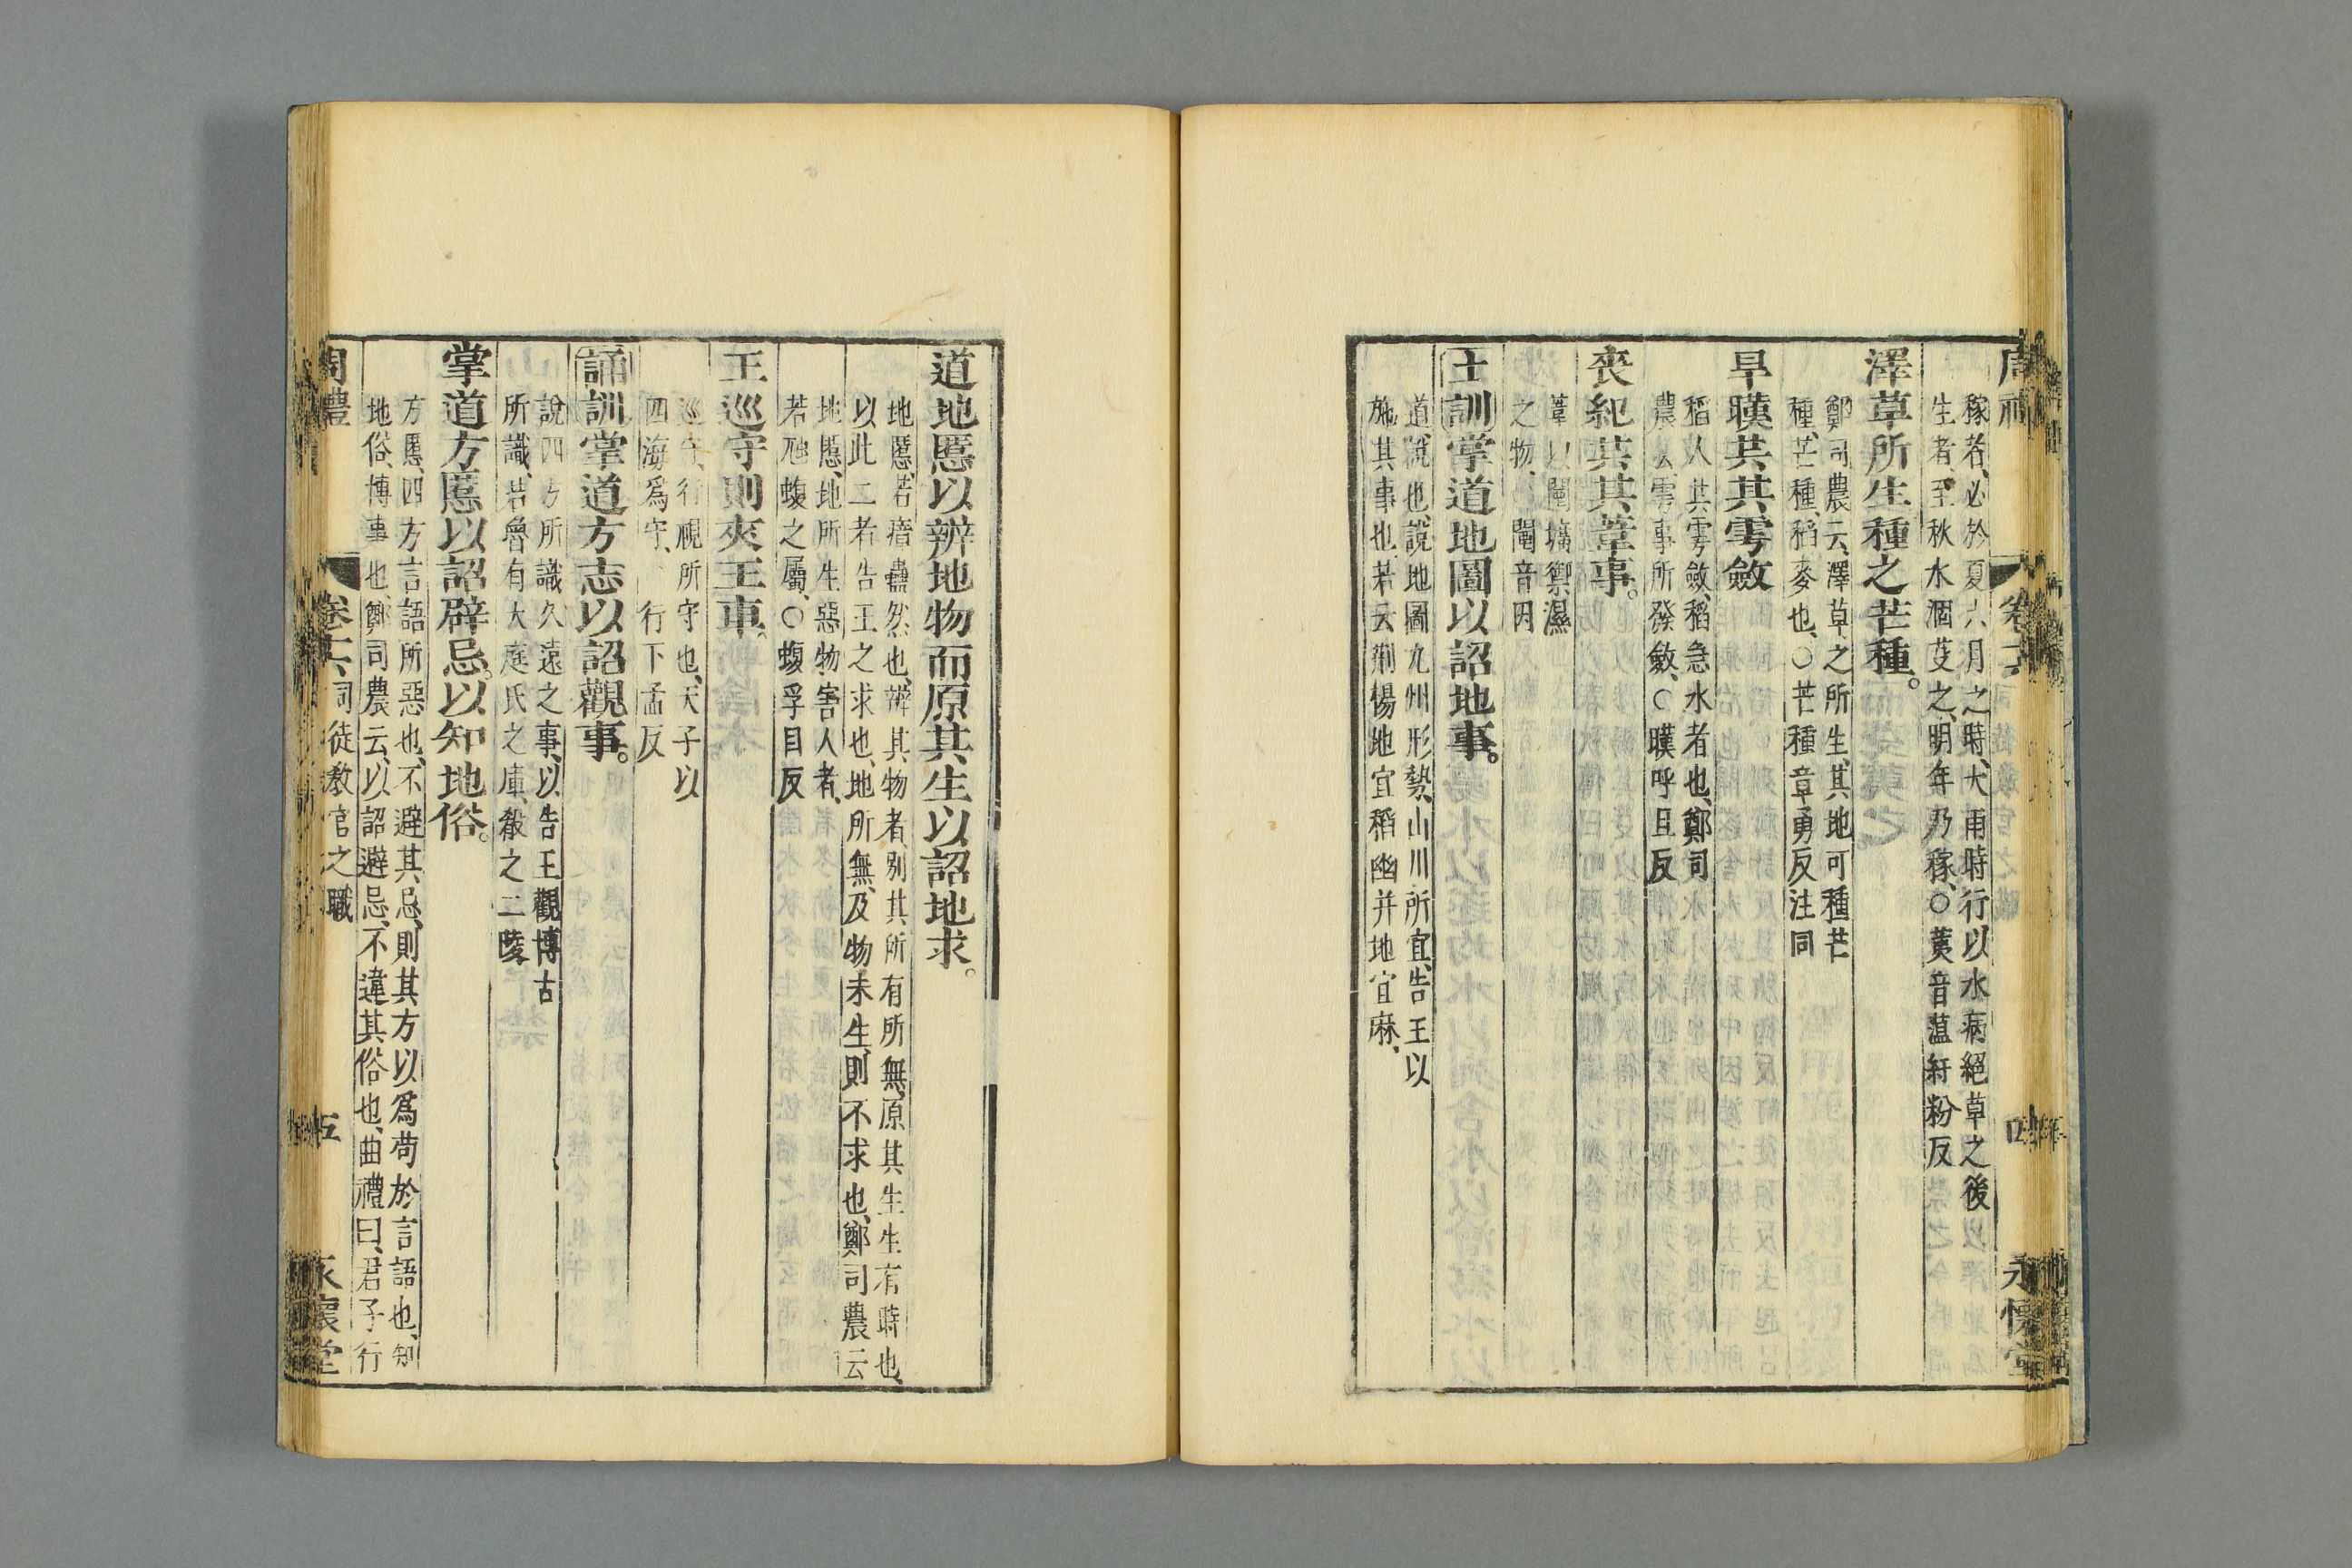 周禮 卷十六 四 永懷堂
稼者、必於夏六月之時、大雨時行、以水病絕草之後
生者、至秋水涸、芟之、明年乃稼、○薁音蕰紆粉反
澤草所生種之芒種。
鄭司農云、澤草之所生、其地可種芒
種、芒種、稻麥也、○芒種章勇反注同
旱暵共其雩斂
稻人共雩斂、稻急水者也、鄭司
農云、雩事所發斂、○暵呼旦反
喪紀共其葦事。
葦以闉壙禦濕
之物、 闉音因
土訓掌道地圖以詔地事。
道、說也、說地圖、九州形勢、山川所宜、告王以
施其事也、若云荆楊地宜稻、幽并地宜麻、
道地慝以辨地物而原其生以詔地求。
地慝、若瘴蠱然也、辨其物者、別其所有所無、原其生、生有時也、
以此二者告王之求也、地所無、及物未生、則不求也、鄭司農云、
地慝、地所生惡物害人者、
若虺蝮之屬、○蝮孚目反
王巡守則夾王車。
巡守、行視所守也、天子以
四海爲守、 行下孟反
誦訓掌道方志以詔觀事。
說四方所識久遠之事、以告王觀博古
所識、若魯有大庭氏之庫、殽之二陵、
掌道方慝以詔辟忌。以知地俗。
方慝、四方言語所惡也、不避其忌、則其方以爲苟於言語也、知
地俗、博事也、鄭司農云、以詔避忌、不違其俗也、曲禮曰、君子行
周禮 卷十六 司徒教官之職 五 永懷堂